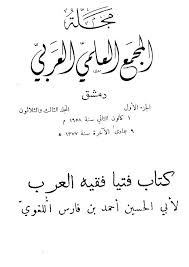 مجلة
المجمع العلمي العربي
دمشق
الجزء الأول المجلد الثالث والثلاثون
١ كانون الثاني سنة ١٩٥٨ م
٩ جمادى الآخرة سنة ١٣٧٧
كتاب فتيا فقيه العرب
لأبي الحسين أحمد بن فارس اللغوي